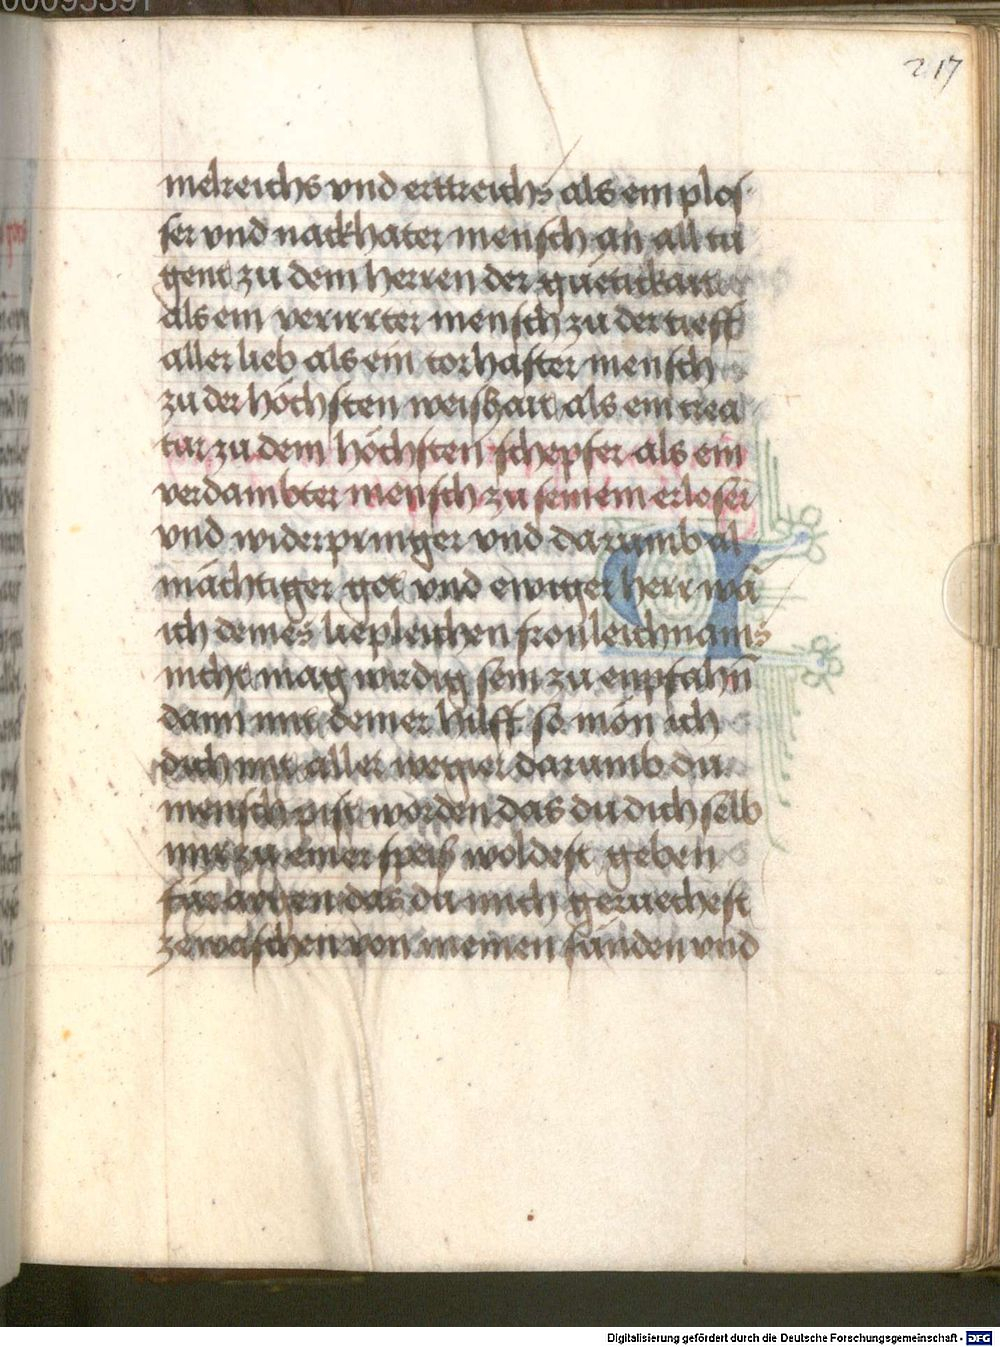 217
melreichs vnd erttreichs als ein plos-
ser vnd nackhater mensch an all tu
gent zu dem herren der guetickait
als ein verirrter mensch zu der tieff
aller lieb als ein torhafter mensch
zu der höchsten weishait als ein crea
tur zu dem höchsten schepfer als ein
verdambter mensch zu seinem erloser
vnd widerpringer vnd darumb al
mächtiger got vnd ewiger herr wā
ich deines liepleichen fronleichnams
nicht mag wirdig sein zu enpfahn̄
dann mit deiner hilff so mön ich
dich mit aller wegier darumb du
mensch pist worden das du dich selb
mir zu einer speis woldest geben
das du mich geruechest
zewaschen von meinen sünden vnd
Digitalisierung gefördert durch die Deutsche Forschungsgemeinschaft - DFG